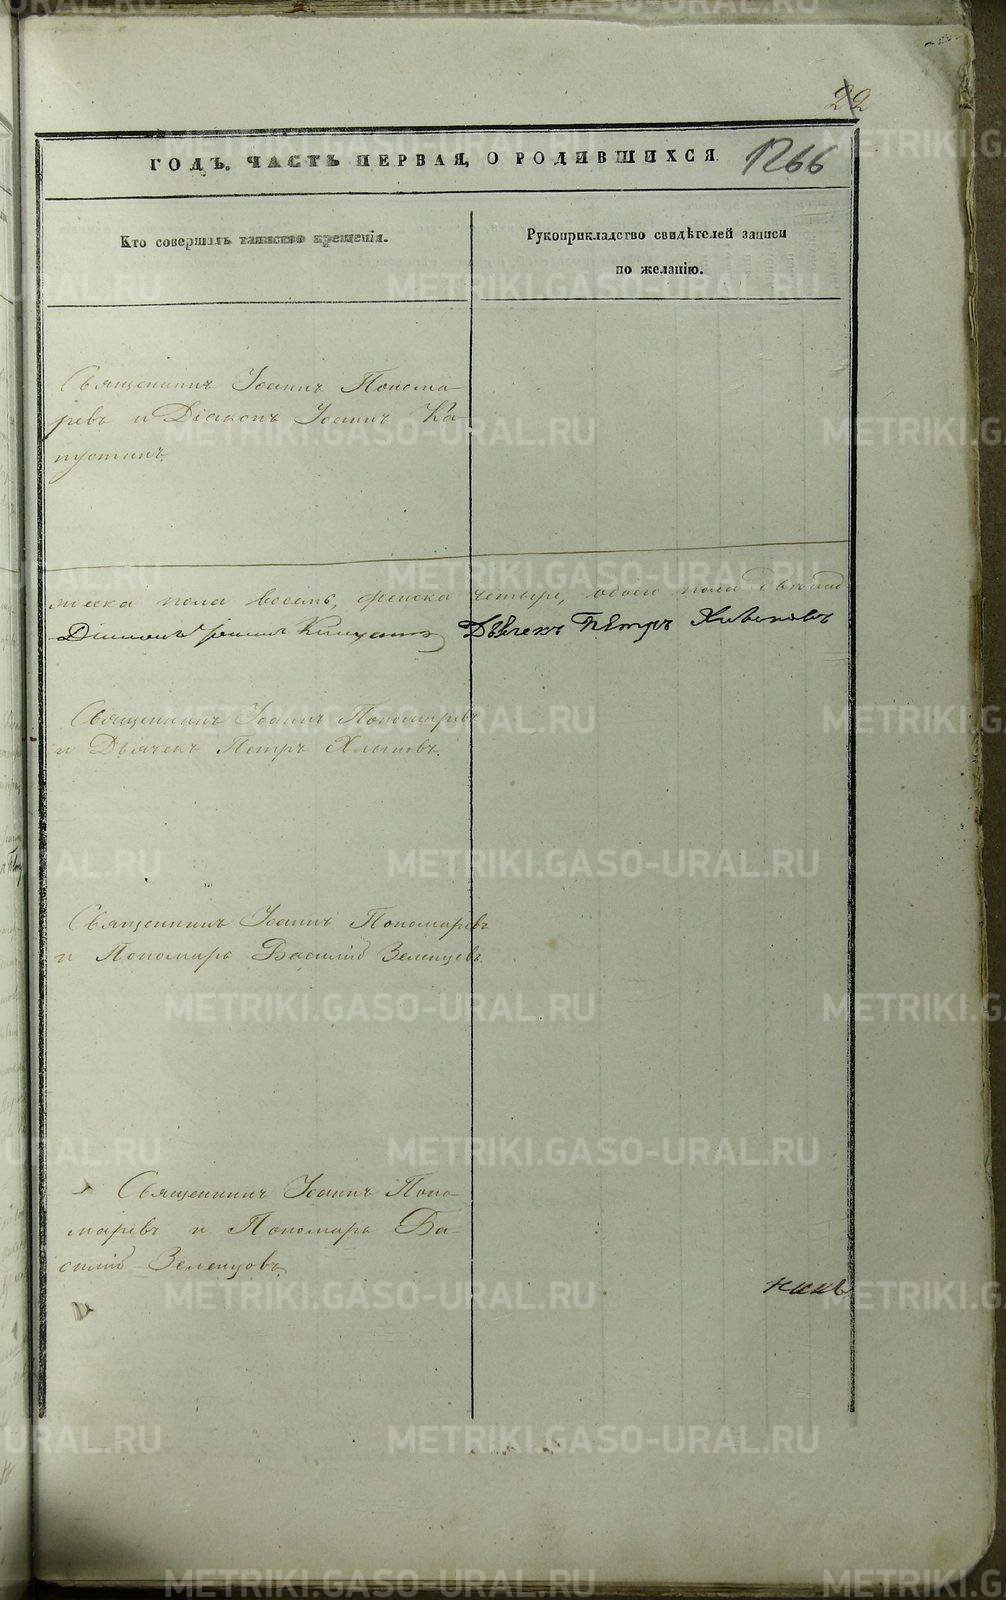 22
ГОДЪ. ЧАСТЬ ПЕРВАЯ, О РОДИВШИХСЯ.
1266
Кто совершалъ таинство крещенія.
Рукоприкладство свидѣтелей записи
по желанію.
Священникъ Іоаннъ Понома-
ревъ и Діаконъ Іоаннъ Ка-
пустинъ.
мужеска пола восемь, женска четыре, обоего пола двѣнад
Діаконъ Іоаннъ Дьячекъ Петръ
Священникъ Іоаннъ Пономаревъ
и Дьячекъ Петръ Хлыновъ.
Священникъ Іоаннъ Пономаревъ
и Пономарь Василій Зеленцовъ.
Священникъ Іоаннъ Поно-
маревъ и Пономарь Ва-
силій Зеленцовъ
METRIKI.GASO-URAL.RU